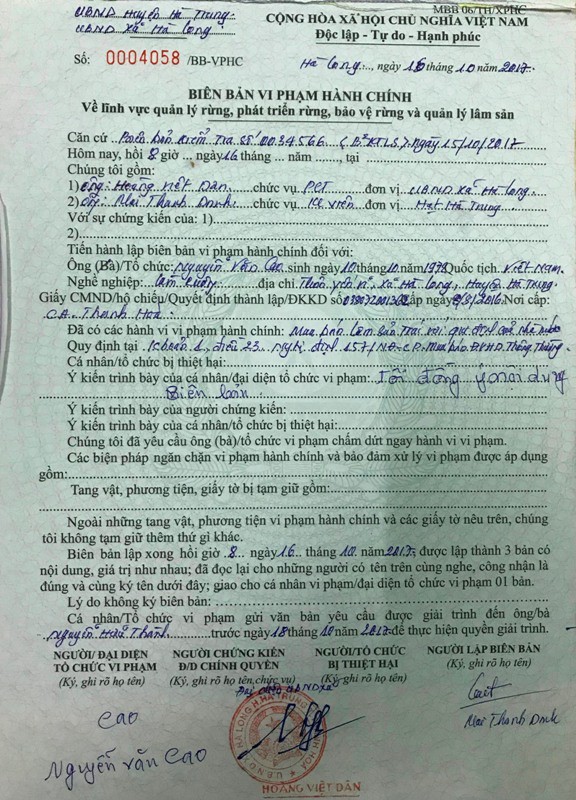 MBB 06/TH/XPHC
UBND Huyện Hà Trung
UBND Xã Hà Long
CỘNG HÒA XÃ HỘI CHỦ NGHĨA VIỆT NAM
Độc lập - Tự do - Hạnh phúc
Số: 0004058 /BB-VPHC
Hà Long..., ngày 16 tháng 10 năm 2017
BIÊN BẢN VI PHẠM HÀNH CHÍNH
Về lĩnh vực quản lý rừng, phát triển rừng, bảo vệ rừng và quản lý lâm sản
Căn cứ Biên bản kiểm tra số 0034566 ngày 15/10/2017
Hôm nay, hồi 8 giờ ... ngày 16 tháng ... năm ......, tại
Chúng tôi gồm:
1) Ông: Hoàng Viết Dân chức vụ PCT đơn vị UBND xã Hà Long
2) Ông: Mai Thanh chức vụ K viên đơn vị Hạt Hà Trung
Với sự chứng kiến của: 1)
2)
Tiến hành lập biên bản vi phạm hành chính đối với:
Ông (Bà)/Tổ chức: Nguyễn Văn Cao sinh ngày 10 tháng 10 năm 1972 Quốc tịch. Việt Nam
Nghề nghiệp: Làm ruộng địa chỉ Thôn xã Hà Long, Huyện Hà Trung
Giấy CMND/hộ chiếu/Quyết định thành lập/ĐKKD số cấp ngày /2016 Nơi cấp:
CA. Thanh Hóa
Đã có các hành vi vi phạm hành chính: Mua bán lâm sản trái với qui định của nhà nước
Quy định tại Khoản 1, điều 23 Nghị định 157/NĐ-CP. Mua bán ĐVHD Thông Thường
Cá nhân/tổ chức bị thiệt hại:
Ý kiến trình bày của cá nhân/đại diện tổ chức vi phạm: Tôi đồng ý nội dung
Biên bản
Ý kiến trình bày của người chứng kiến:
Ý kiến trình bày của cá nhân/tổ chức bị thiệt hại:
Chúng tôi đã yêu cầu ông (bà)/tổ chức vi phạm chấm dứt ngay hành vi vi phạm.
Các biện pháp ngăn chặn vi phạm hành chính và bảo đảm xử lý vi phạm được áp dụng
gồm:
Tang vật, phương tiện, giấy tờ bị tạm giữ gồm:
Ngoài những tang vật, phương tiện vi phạm hành chính và các giấy tờ nêu trên, chúng
tôi không tạm giữ thêm thứ gì khác.
Biên bản lập xong hồi giờ 8 ngày 16 tháng 10 năm 2017, được lập thành 3 bản có
nội dung, giá trị như nhau; đã đọc lại cho những người có tên trên cùng nghe, công nhận là
đúng và cùng ký tên dưới đây; giao cho cá nhân vi phạm/đại diện tổ chức vi phạm 01 bản.
Lý do không ký biên bản:
Cá nhân/Tổ chức vi phạm gửi văn bản yêu cầu được giải trình đến ông/bà
Nguyễn Hữu Thanh trước ngày 18 tháng 10 năm 2017 để thực hiện quyền giải trình.
NGƯỜI/ ĐẠI DIỆN TỔ CHỨC VI PHẠM
(Ký, ghi rõ họ tên)
NGƯỜI CHỨNG KIẾN Đ/D CHÍNH QUYỀN
(Ký, ghi rõ họ tên, chức vụ)
NGƯỜI/TỔ CHỨC BỊ THIỆT HẠI
(Ký, ghi rõ họ tên)
NGƯỜI LẬP BIÊN BẢN
(Ký, ghi rõ họ tên)
Cao
Nguyễn Văn Cao
HOÀNG VIỆT DÂN
Mai Thanh